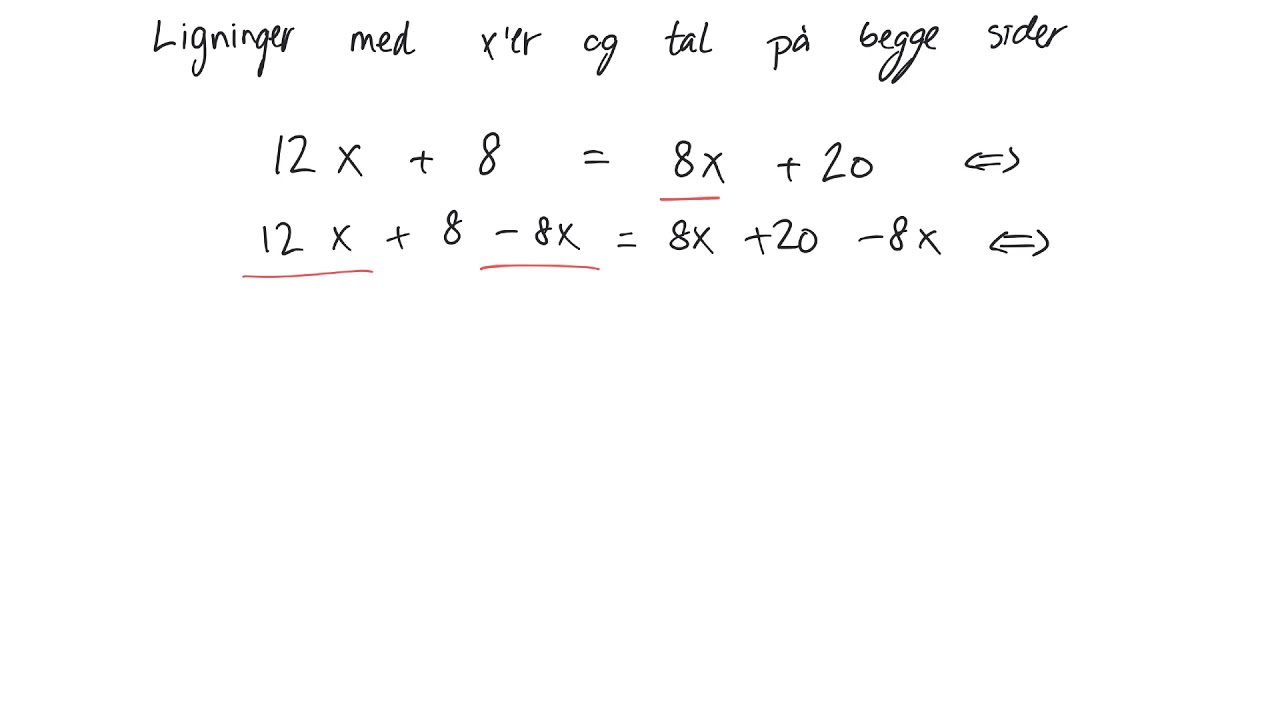 Ligninger med x'er og tal på begge sider
12 x + 8 = 8x + 20 ⇔
12 x + 8 - 8x = 8x + 20 - 8x ⇔